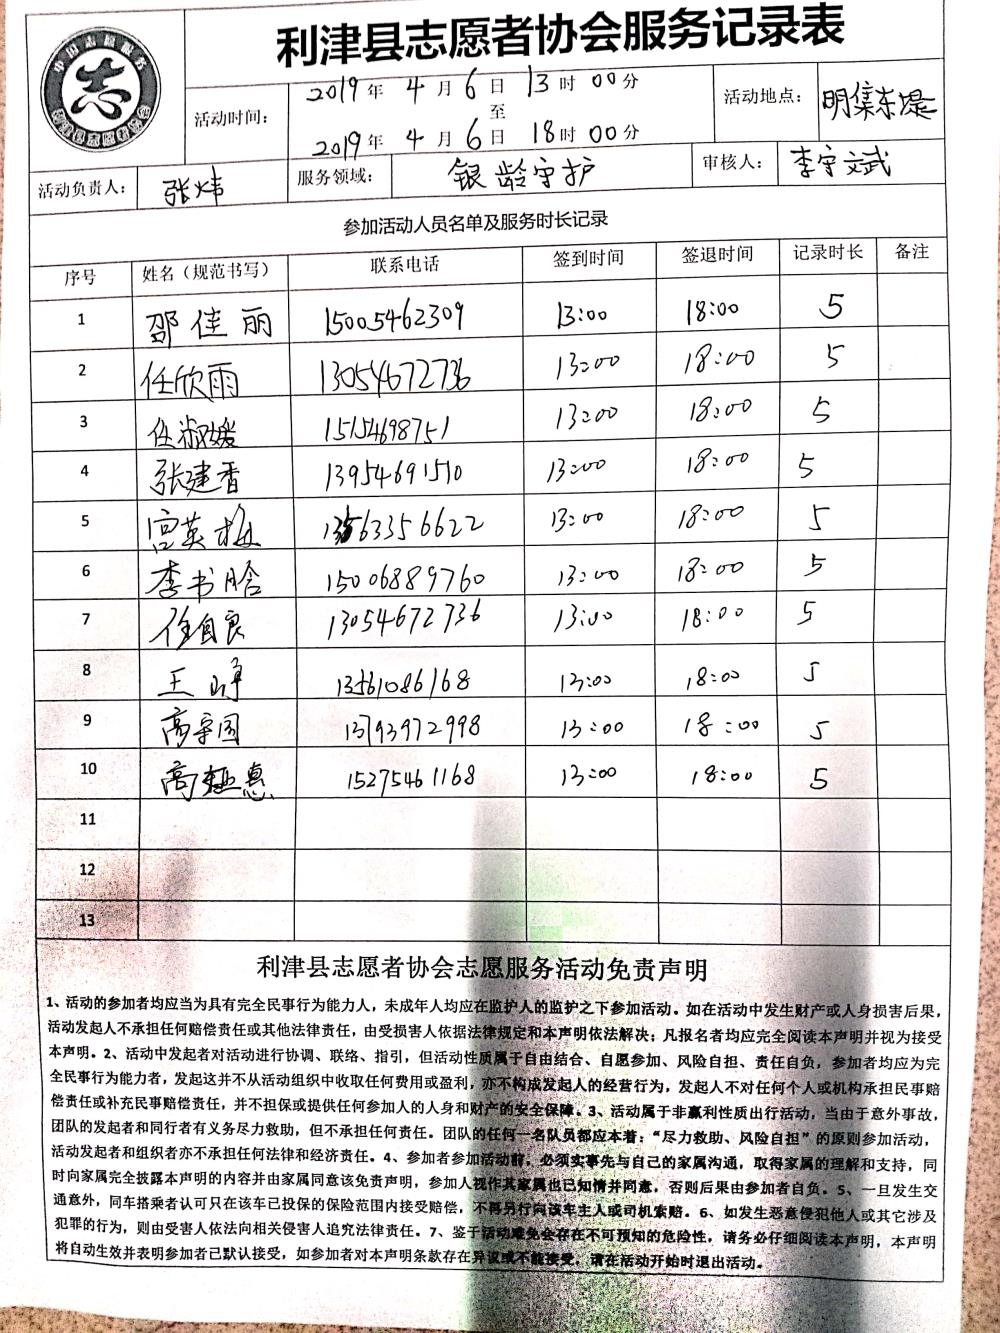 利津县志愿者协会服务记录表
活动时间：
2019年 4月 6日 13时 00分
至
2019年 4月 6日 18时 00分
活动地点：
明集东堤
活动负责人：
张炜
服务领域：
银龄守护
审核人：
李宇文武
参加活动人员名单及服务时长记录
序号 姓名（规范书写） 联系电话 签到时间 签退时间 记录时长 备注
1 邵佳丽 15005462309 13:00 18:00 5
2 任欣雨 13054672736 13:00 18:00 5
3 任淑媛 15154698751 13:00 18:00 5
4 张建香 13954691510 13:00 18:00 5
5 宫英梅 13563356622 13:00 18:00 5
6 李书晗 15006889760 13:00 18:00 5
7 任自良 13054672736 13:00 18:00 5
8 王峥 13561086168 13:00 18:00 5
9 高宗国 13793972998 13:00 18:00 5
10 高 惠 15275461168 13:00 18:00 5
11
12
13
利津县志愿者协会志愿服务活动免责声明
1、活动的参加者均应当为具有完全民事行为能力人，未成年人均应在监护人的监护之下参加活动。如在活动中发生财产或人身损害后果，
活动发起人不承担任何赔偿责任或其他法律责任，由受损害人依据法律规定和本声明依法解决；凡报名者均应完全阅读本声明并视为接受
本声明。2、活动中发起者对活动进行协调、联络、指引，但活动性质属于自由结合、自愿参加、风险自担、责任自负，参加者均应为完
全民事行为能力者，发起这并不从活动组织中收取任何费用或盈利，亦不构成发起人的经营行为，发起人不对任何个人或机构承担民事赔
偿责任或补充民事赔偿责任，并不担保或提供任何参加人的人身和财产的安全保障。3、活动属于非赢利性质出行活动，当由于意外事故，
团队的发起者和同行者有义务尽力救助，但不承担任何责任。团队的任何一名队员都应本着：“尽力救助、风险自担”的原则参加活动，
活动发起者和组织者亦不承担任何法律和经济责任。4、参加者参加活动前，必须实事先与自己的家属沟通，取得家属的理解和支持，同
时向家属完全披露本声明的内容并由家属同意该免责声明，参加人视作其家属也已知情并同意，否则后果由参加者自负。5、一旦发生交
通意外，同车搭乘者认可只在该车已投保的保险范围内接受赔偿，不再另行向该车主人或司机索赔。6、如发生恶意侵犯他人或其它涉及
犯罪的行为，则由受害人依法向相关侵害人追究法律责任。7、鉴于活动难免会存在不可预知的危险性，请务必仔细阅读本声明，本声明
将自动生效并表明参加者已默认接受，如参加者对本声明条款存在异议或不能接受，请在活动开始时退出活动。